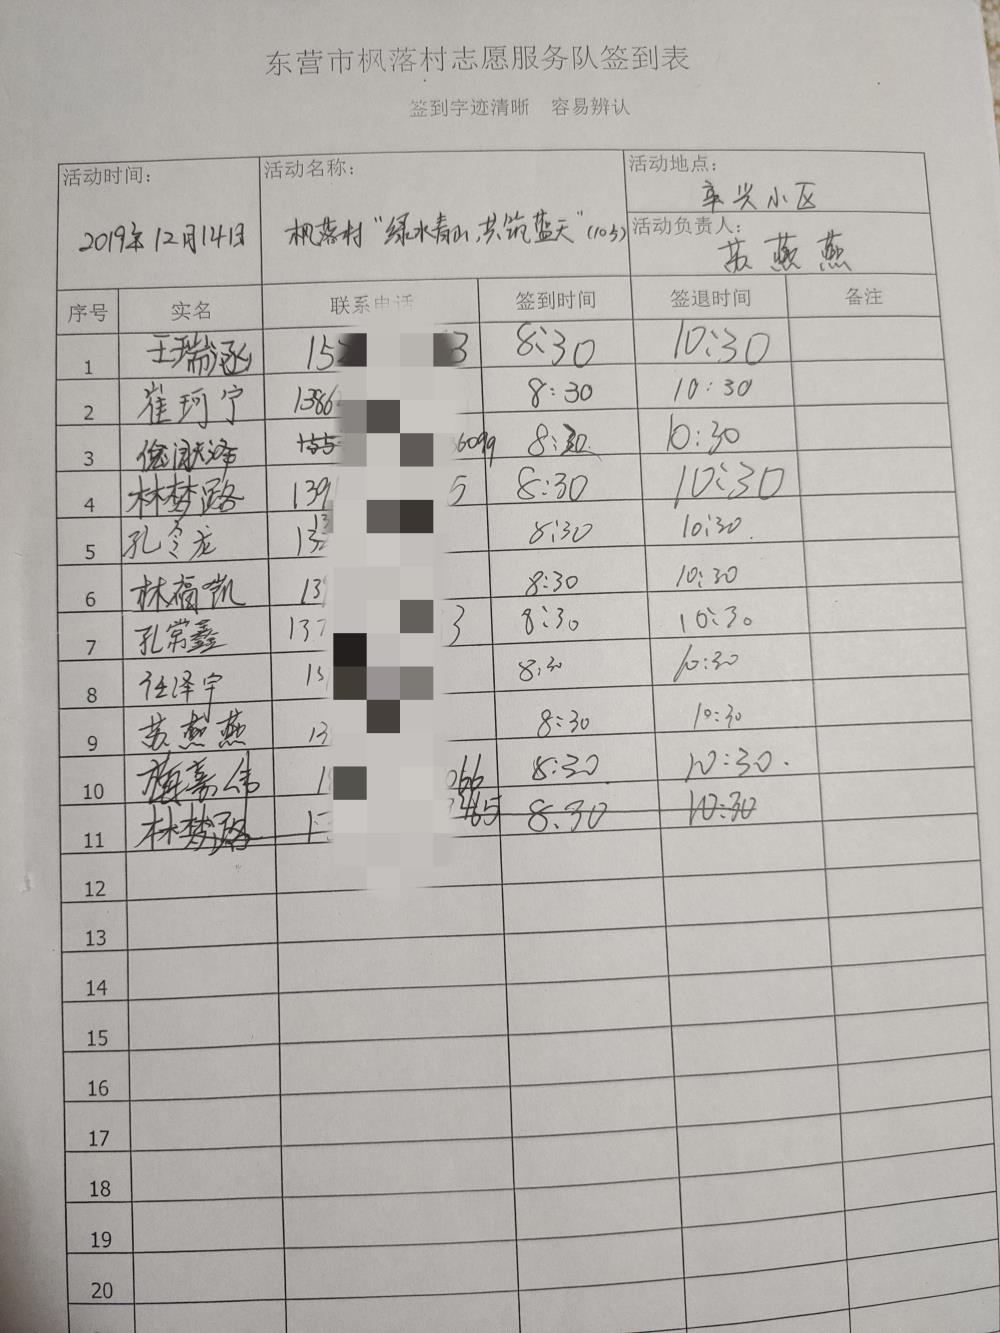 东营市枫落村志愿服务队签到表
签到字迹清晰 容易辨认
活动时间: 活动名称: 活动地点:
辛兴小区
2019年12月14日 枫落村“绿水青山,共筑蓝天” 活动负责人:
苏燕燕
序号 实名 联系电话 签到时间 签退时间 备注
1 王瑞涵 15 3 8:30 10:30
2 崔珂宁 1386 8:30 10:30
3 6099 8:30 10:30
4 林梦璐 139 5 8:30 10:30
5 孔令龙 13 8:30 10:30
6 林福凯 13 8:30 10:30
7 孔常鑫 137 3 8:30 10:30
8 任泽宇 13 8:30 10:30
9 苏燕燕 13 8:30 10:30
10 嘉伟 1 066 8:30 10:30.
11 林梦璐 1 465 8:30 10:30
12
13
14
15
16
17
18
19
20